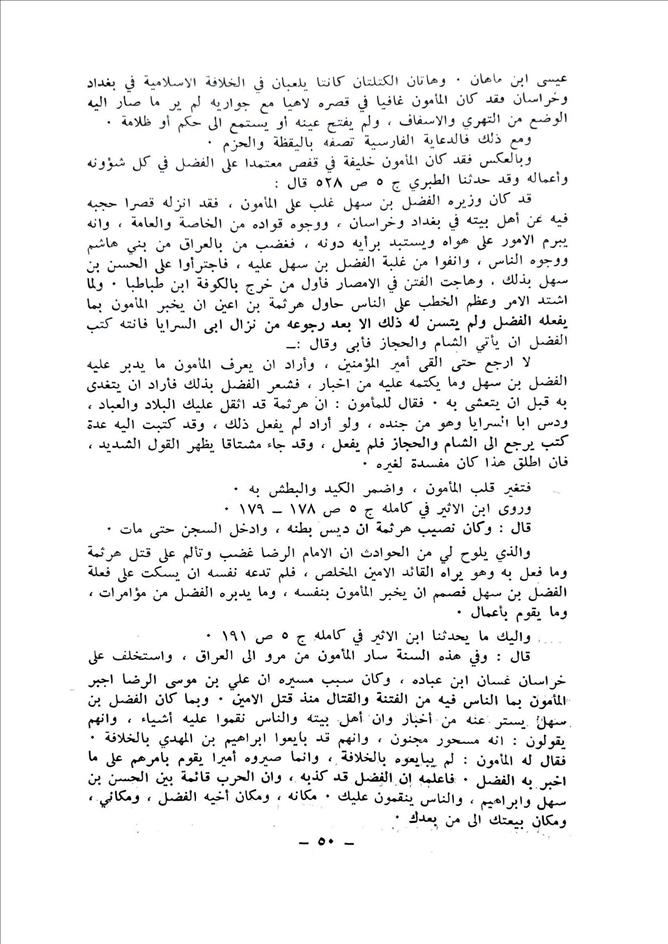 عيسى ابن ماهان . وهاتان الكتلتان كانتا يلعبان في الخلافة الاسلامية في بغداد
وخراسان فقد كان المأمون غافيا في قصره لاهيا مع جواريه لم ير ما صار اليه
الوضع من التهري والاسفاف ، ولم يفتح عينه أو يستمع الى حكم أو ظلامة .
ومع ذلك فالدعاية الفارسية تصفه باليقظة والحزم .
وبالعكس فقد كان المأمون خليفة في قفص معتمدا على الفضل في كل شؤونه
وأعماله وقد حدثنا الطبري ج ٥ ص ٥٢٨ قال :
قد كان وزيره الفضل بن سهل غلب على المأمون ، فقد انزله قصرا حجبه
فيه عن أهل بيته في بغداد وخراسان ، ووجوه قواده من الخاصة والعامة ، وانه
يبرم الامور على هواه ويستبد برأيه دونه ، فغضب من بالعراق من بني هاشم
ووجوه الناس ، وانفوا من غلبة الفضل بن سهل عليه ، فاجترأوا على الحسن بن
سهل بذلك . وهاجت الفتن في الامصار فأول من خرج بالكوفة ابن طباطبا . ولما
اشتد الامر وعظم الخطب على الناس حاول هرثمة بن اعين ان يخبر المأمون بما
يفعله الفضل ولم يتسن له ذلك الا بعد رجوعه من نزال ابى السرايا فانته كتب
الفضل ان يأتي الشام والحجاز فأبى وقال :ــ
لا ارجع حتى القى أمير المؤمنين ، وأراد ان يعرف المأمون ما يدبر عليه
الفضل بن سهل وما يكتمه عليه من اخبار ، فشعر الفضل بذلك فأراد ان يتغدى
به قبل ان يتعشى به . فقال للمأمون : ان هرثمة قد اثقل عليك البلاد والعباد ،
ودس ابا السرايا وهو من جنده ، ولو أراد لم يفعل ذلك ، وقد كتبت اليه عدة
كتب يرجع الى الشام والحجاز فلم يفعل ، وقد جاء مشتاقا يظهر القول الشديد ،
فان اطلق هذا كان مفسدة لغيره .
فتغير قلب المأمون ، واضمر الكيد والبطش به .
وروى ابن الاثير في كامله ج ٥ ص ١٧٨ – ١٧٩ .
قال : وكان نصيب هرثمة ان ديس بطنه ، وادخل السجن حتى مات .
والذي يلوح لي من الحوادث ان الامام الرضا غضب وتألم على قتل هرثمة
وما فعل به وهو يراه القائد الامين المخلص ، فلم تدعه نفسه ان يسكت على فعلة
الفضل بن سهل فصمم ان يخبر المأمون بنفسه ، وما يدبره الفضل من مؤامرات ،
وما يقوم بأعمال .
واليك ما يحدثنا ابن الاثير في كامله ج ٥ ص ١٩١ .
قال : وفي هذه السنة سار المأمون من مرو الى العراق ، واستخلف على
خراسان غسان ابن عباده ، وكان سبب مسيره ان علي بن موسى الرضا اجبر
المأمون بما الناس فيه من الفتنة والقتال منذ قتل الامين . وبما كان الفضل بن
سهل يستر عنه من أخبار وان أهل بيته والناس نقموا عليه أشياء ، وانهم
يقولون : انه مسحور مجنون ، وانهم قد بايعوا ابراهيم بن المهدي بالخلافة .
فقال له المأمون : لم يبايعوه بالخلافة ، وانما صيروه أميرا يقوم بأمرهم على ما
اخبر به الفضل . فاعلمه إن الفضل قد كذبه ، وان الحرب قائمة بين الحسن بن
سهل وابراهيم ، والناس ينقمون عليك . مكانه ، ومكان أخيه الفضل ، ومكاني ،
ومكان بيعتك الى من بعدك .
– ٥٠ –